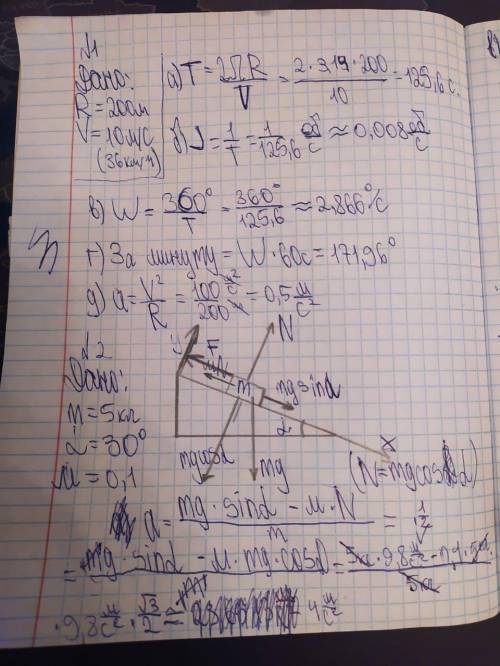 №1
Дано:
R = 200м
V = 10м/с
(36км/ч)
а) T = 2πR/V = 2·3,14·200/10 = 125,6 с.
б) ν = 1/T = 1/125,6 об/с ≈ 0,008 об/с
в) W = 360°/T = 360°/125,6 ≈ 2,866°/с
г) За минуту = W·60с = 171,96°
д) a = V²/R = 100/200 = 0,5 м/с²
№2
Дано:
m = 5кг
α = 30°
μ = 0,1
y F N
m mg sinα
α
mg cosα mg x
(N = mg cosα)
a = mg·sinα − μ·N / m =
= mg·sinα − μ·mg·cosα / m =
·9,8 м/с² · √3/2 = 4 м/с²